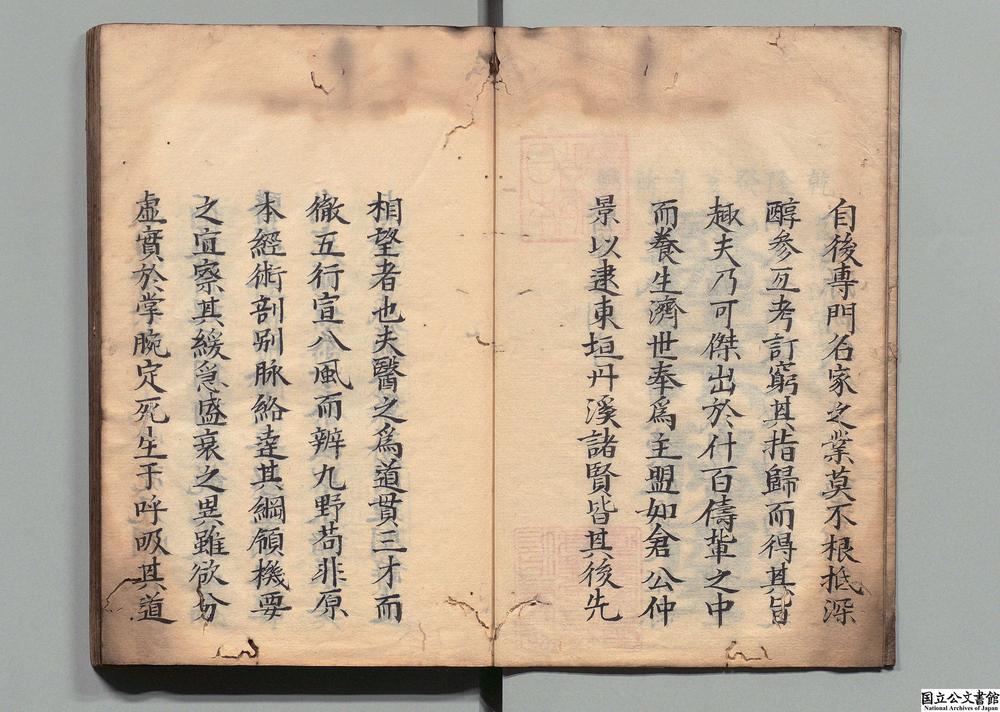 自後專門名家之業莫不根抵深
醇參互考訂窮其指歸而得其旨
趣夫乃可傑出於什百儔軰之中
而養生濟世奉為主盟如倉公仲
景以逮東垣丹溪諸賢皆其後先
相望者也夫醫之為道貫三才而
徹五行宣八風而辨九野茍非原
本經術剖別脉絡達其綱領機要
之宜察其緩急盛衰之異雖欲分
虛實於掌腕定死生于呼吸其道
国立公文書館
National Archives of Japan